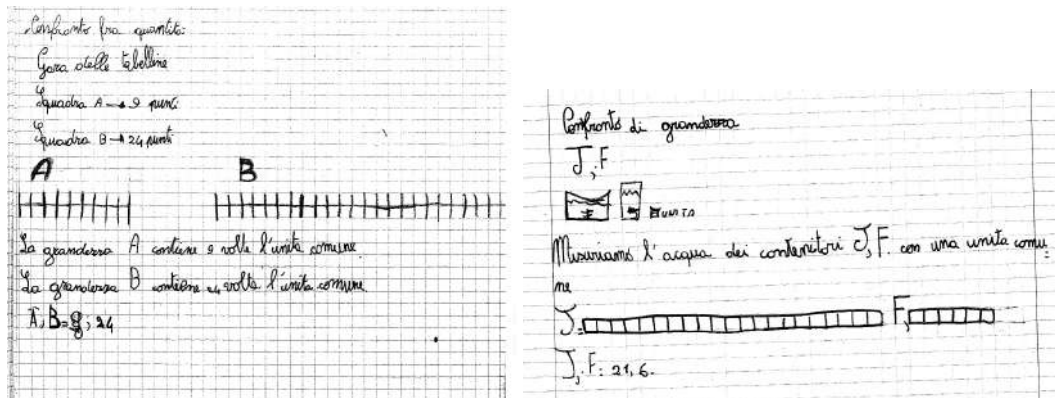 Confronto fra quantità:
Gara delle tabelline
Squadra A → 9 punti
Squadra B → 24 punti
A B
La grandezza A contiene 9 volte l'unità comune
La grandezza B contiene 24 volte l'unità comune.
A, B = 9; 24
Confronto di grandezza
J, F
UNITA
Misuriamo l'acqua dei contenitori J, F. con una unita comu
ne
J= F,
J, F: 21, 6.